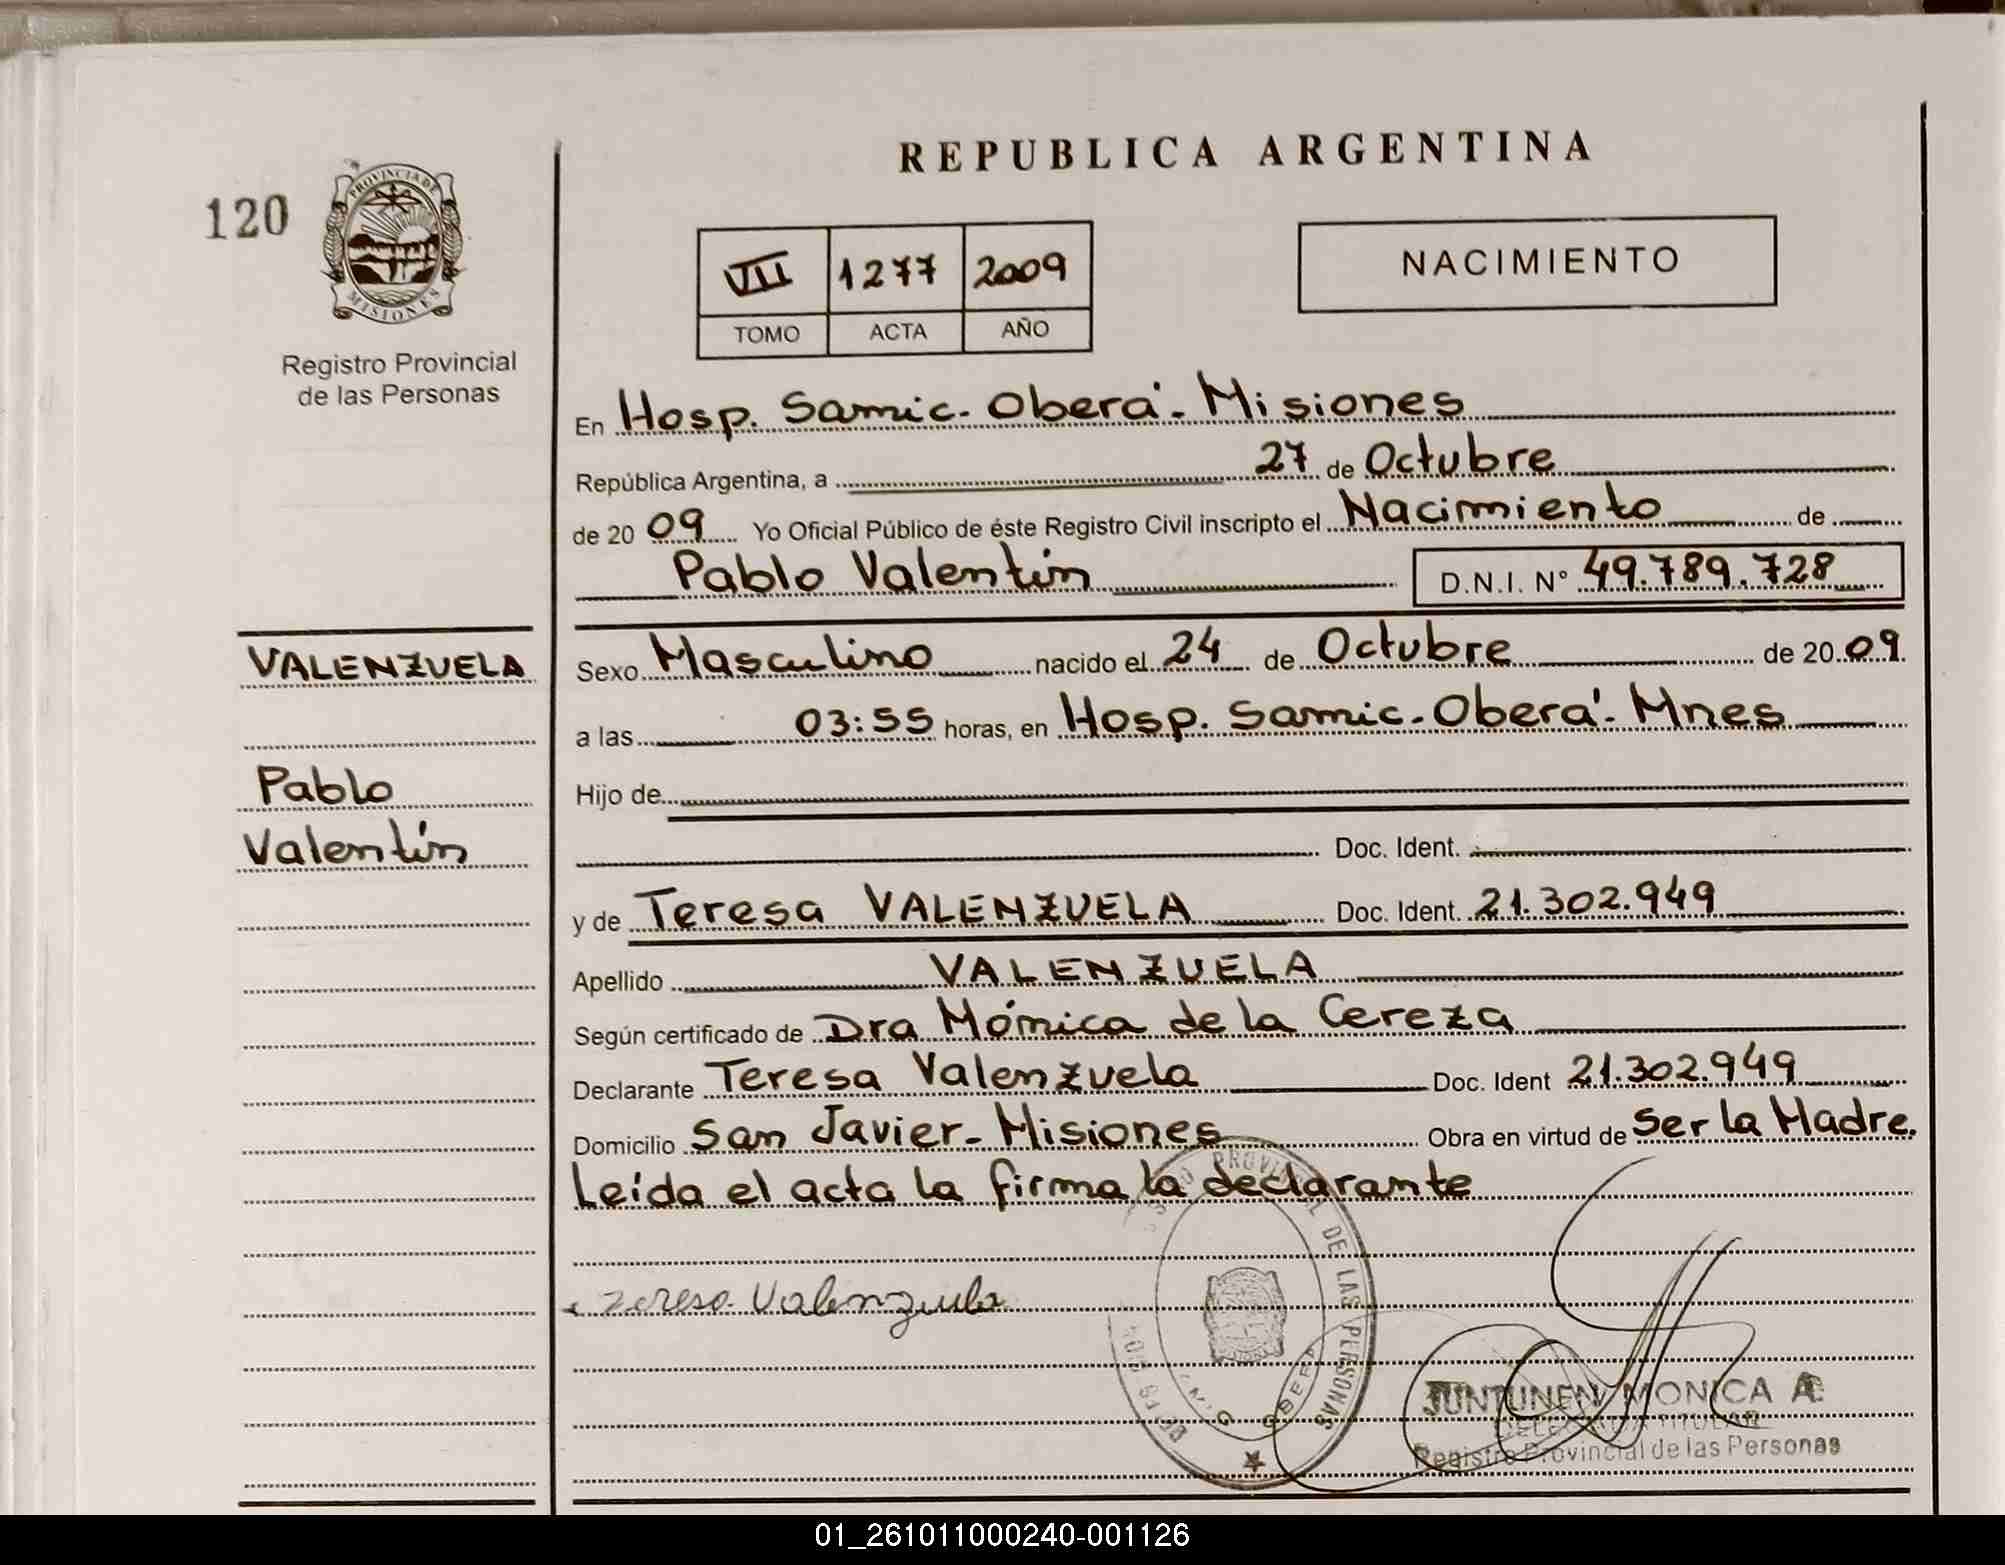 REPUBLICA ARGENTINA
120
PROVINCIA DE
MISIONES
Registro Provincial
de las Personas
VII 1277 2009
TOMO ACTA AÑO
NACIMIENTO
En Hosp. Samic. Oberá. Misiones
República Argentina, a 27 de Octubre
de 20 09 Yo Oficial Público de éste Registro Civil inscripto el Nacimiento de
Pablo Valentín D.N.I. Nº 49.789.728
VALENZUELA
Pablo
Valentín
Sexo Masculino nacido el 24 de Octubre de 20 09
a las 03:55 horas, en Hosp. Samic. Oberá. Mnes
Hijo de
Doc. Ident.
y de Teresa VALENZUELA Doc. Ident. 21.302.949
Apellido VALENZUELA
Según certificado de Dra Mónica de la Cereza
Declarante Teresa Valenzuela Doc. Ident 21.302.949
Domicilio San Javier - Misiones Obra en virtud de Ser la Madre.
Leída el acta la firma la declarante
Teresa Valenzuela
DE LAS PERSONAS
OBERA
JUNTUNEN MONICA A
DELEGADA TITULAR
Registro Provincial de las Personas
01_261011000240-001126